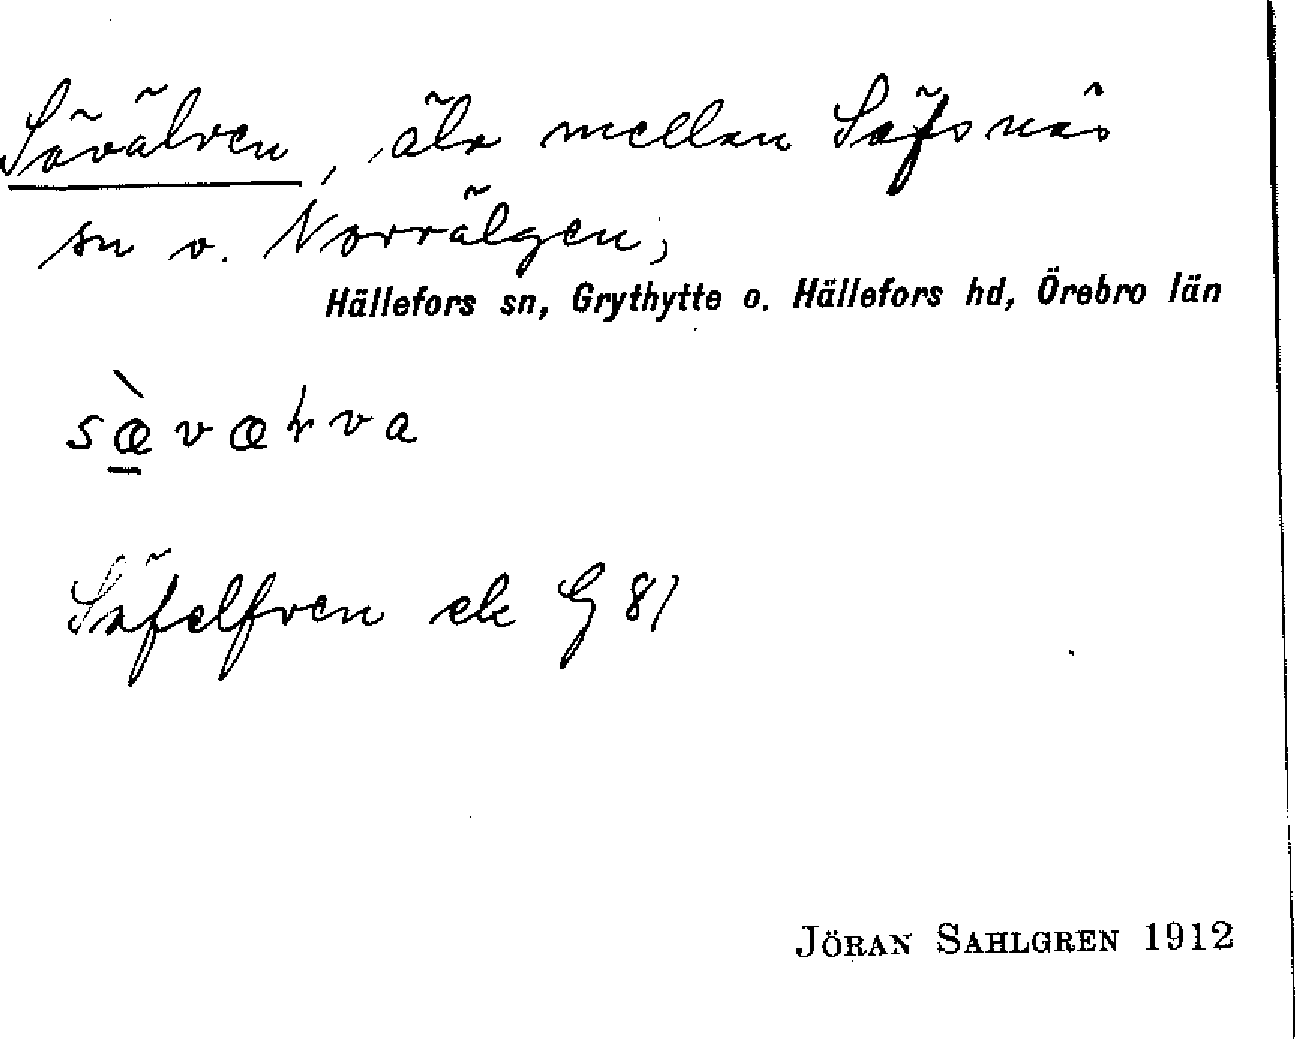 Sävälven, älv mellan Säfsnäs
sn o. Norrälgen,
Hällefors sn, Grythytte o. Hällefors hd, Örebro län
sæ̀væłva
Säfelfven ek G 81
JÖRAN SAHLGREN 1912